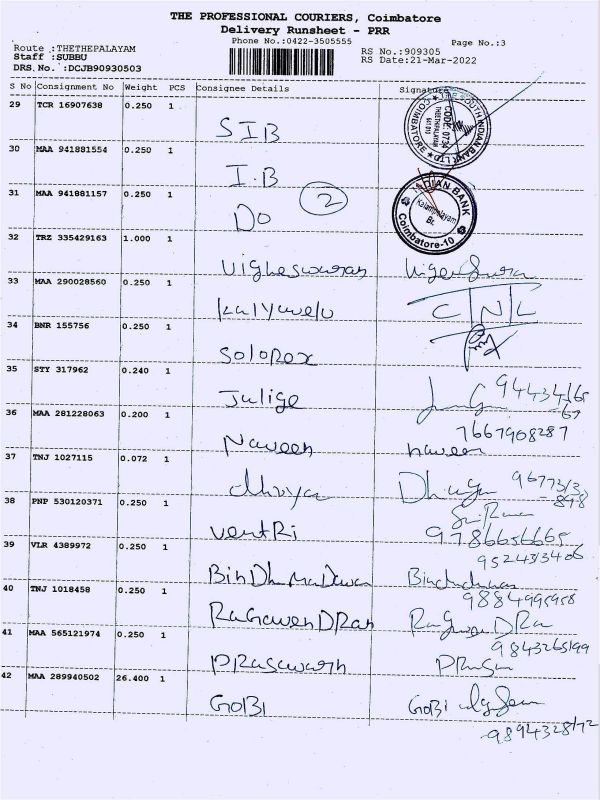 THE PROFESSIONAL COURIERS, Coimbatore
Delivery Runsheet - PRR
Phone No.:0422-3505555
Page No.:3
Route :THETHEPALAYAM
Staff :SUBBU
DRS.No. :DCJB90930503
RS No.:909305
RS Date:21-Mar-2022
S No Consignment No Weight PCS Consignee Details Signature
29 TCR 16907638 0.250 1
SIB
THE SOUTH INDIAN BANK LTD COIMBATORE CODE: 0734 THEETHIPALAYAM 641 010
30 MAA 941881554 0.250 1
I.B
31 MAA 941881157 0.250 1
Do 2
INDIAN BANK Kalampalayam Br. Coimbatore-10
32 TRZ 335429163 1.000 1
Vigheswaran
33 MAA 290028560 0.250 1
kalyuvelu CNL
34 BNR 155756 0.250 1
Solopox
35 STY 317962 0.240 1
Julige
36 MAA 281228063 0.200 1
7667908287
Naveen naveen
37 TNJ 1027115 0.072 1
dhivya Dhivya
38 PNP 530120371 0.250 1
9786656665
ventRi
39 VLR 4389972 0.250 1
BinDhuMaDavan
40 TNJ 1018458 0.250 1
9884995958
RaGavenDRan
41 MAA 565121974 0.250 1
9843265199
PRasawath
42 MAA 289940502 26.400 1
GOBI GOBI
9894328172